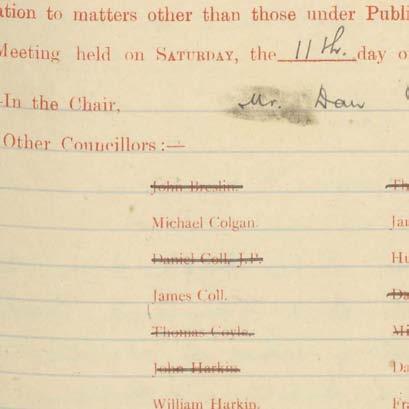 ation to matters other than those under Publi
Meeting held on SATURDAY, the 11th. day o
In the Chair, Mr. Dan
Other Councillors:—
John Breslin. Th
Michael Colgan. Ja
Daniel Coll, J.P. Hu
James Coll. Da
Thomas Coyle. Mi
John Harkin. Da
William Harkin. Fra